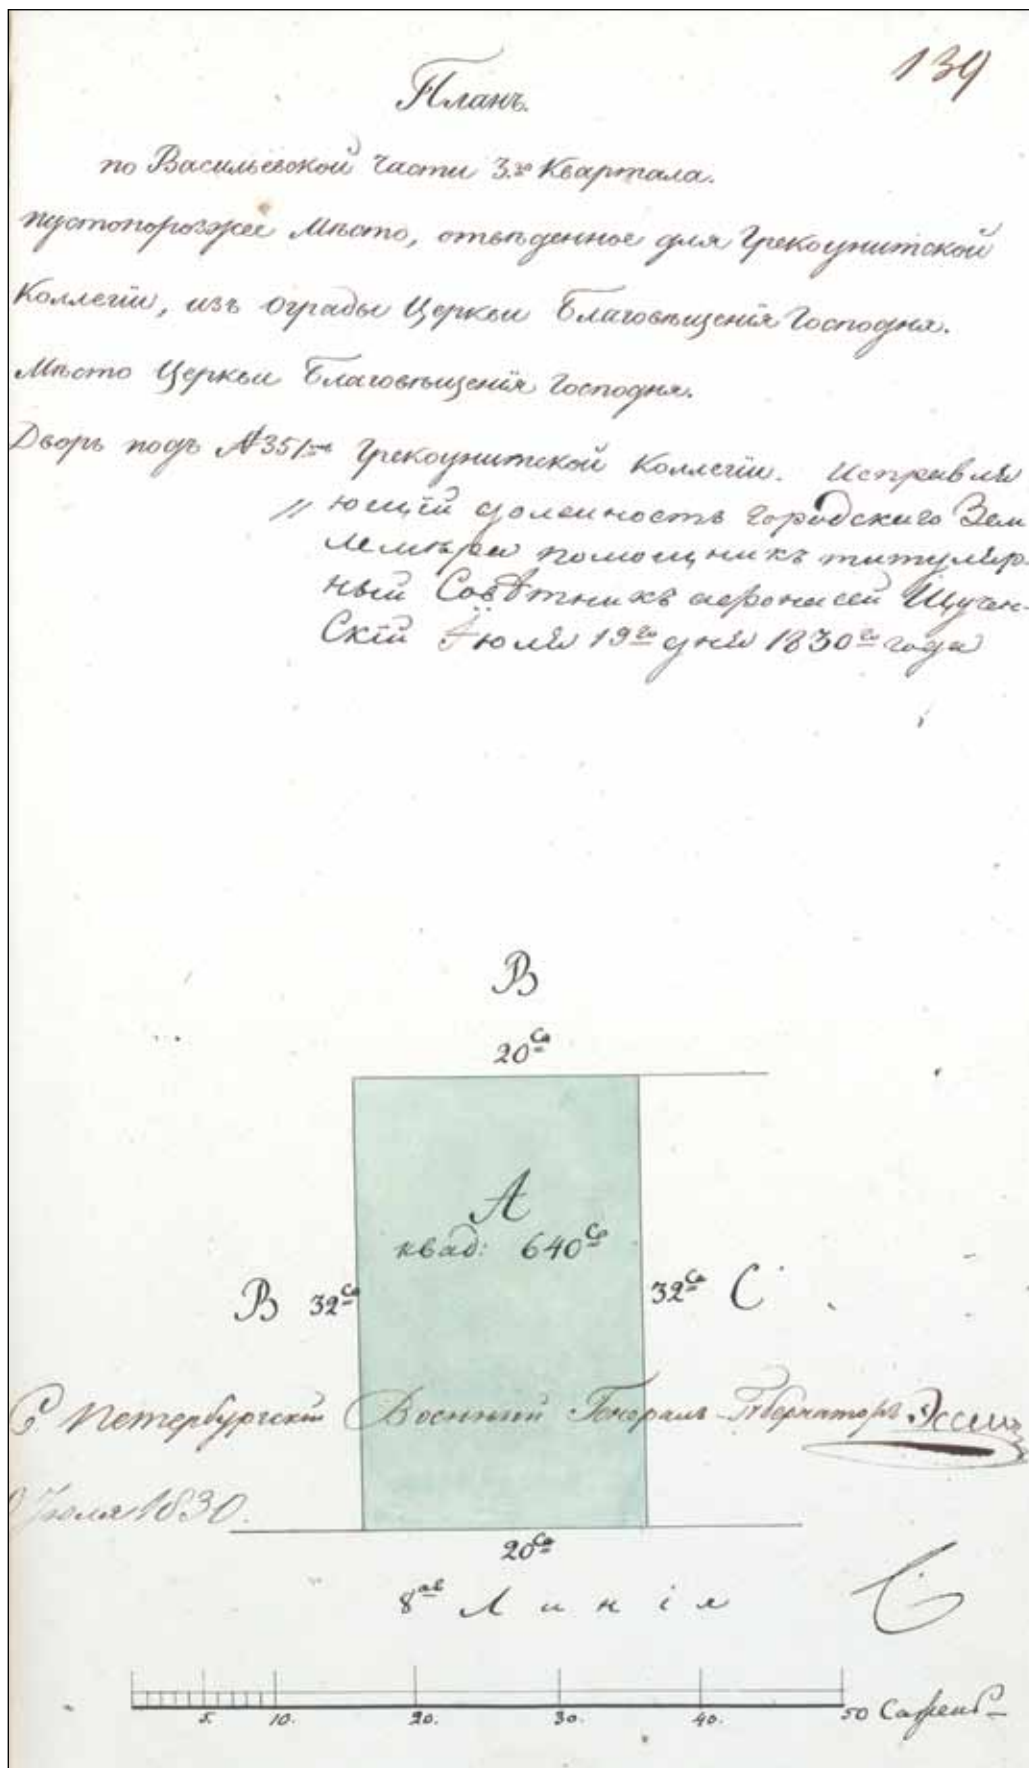 139
Планъ.
по Васильевской части 3го Квартала.
пустопорозжее Мѣсто, отвѣденное для Грекоунитской
Коллегіи, изъ ограды Церкви Благовѣщенія Господня.
Мѣсто Церкви Благовѣщенія Господня.
Дворъ подъ №351мъ Грекоунитской Коллегіи. Исправля
ющій должность Городскаго Зем
лемѣра помощникъ титуляр
ный Совѣтникъ Афонасей Щучен-
скій Іюля 19го дня 1830го года
В
20Са
А
квад: 640Са
В 32Са
32Са С
С Петербургскій Военный Генералъ-Губернаторъ Эссенъ
Іюля 1830.
20Са
8ая Линія
5. 10. 20. 30. 40. 50 Сажень